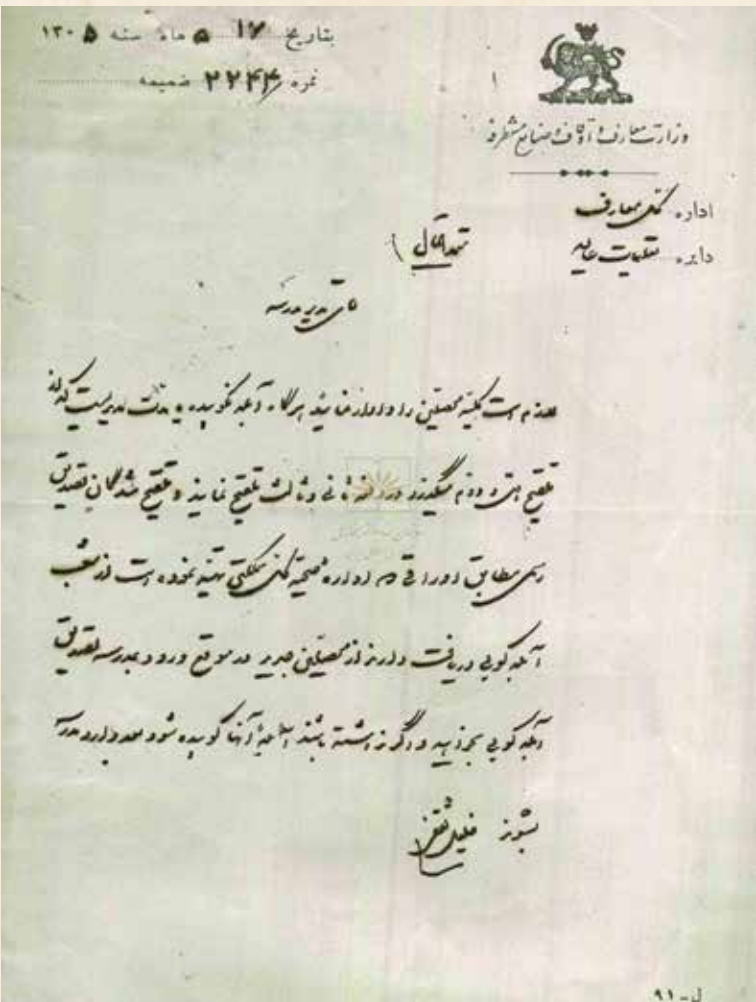 بتاریخ ۱۷ ماه ۵ سنه ۱۳۰۵
نمره ۲۲۴۴ ضمیمه
وزارت معارف و اوقاف و صنایع مستظرفه
اداره کل معارف
دایره تعلیمات عالیه
متحدالمآل
آقای مدیر مدرسه
لازم است کلیه محصلین را وادار نمایید هرگاه آبله نکوبیده یا مدت مدیدیست که از
تلقیح آنها میگذرد در دفعه ثانی و ثالث تلقیح نمایند و تلقیح شدگان تصدیق
رسمی مطابق اوراقی که اداره صحیه کل مملکتی تهیه نموده است از شعب
آبله کوبی دریافت دارند از محصلین جدید در موقع ورود بمدرسه تصدیق
آبله کوبی بخواهید و اگر نداشته باشند آبله آنها کوبیده شود بعد وارد مدرسه
بشوند
ل-۹۱